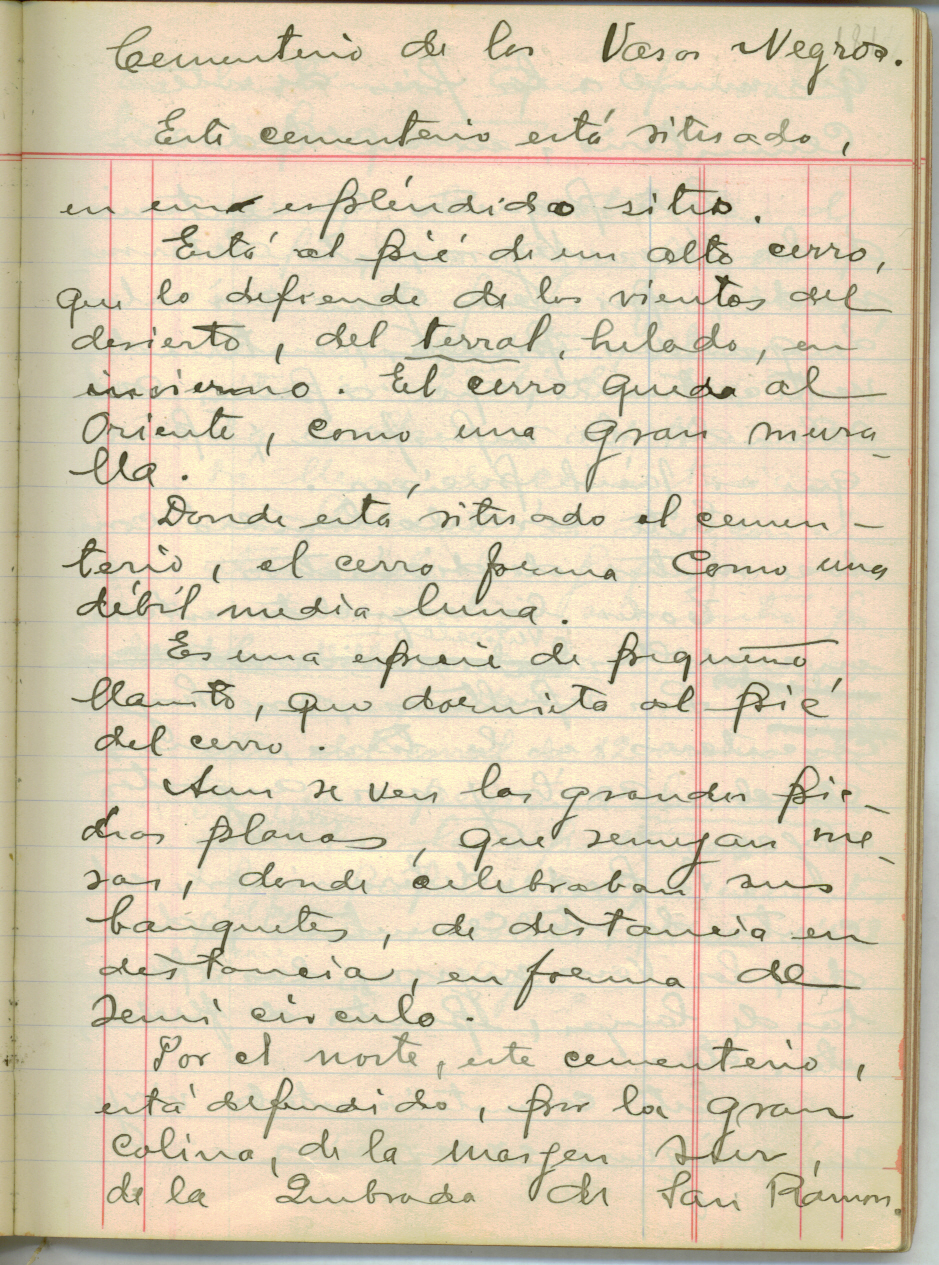 Cementerio de los Vasos Negros.
Este cementerio está situado,
en un espléndido sitio.
Está al pié de un alto cerro,
que lo defiende de los vientos del
desierto, del terral, helado, en
invierno. El cerro queda al
Oriente, como una gran mura-
lla.
Donde está situado el cemen-
terio, el cerro forma como una
débil media luna.
Es una especie de pequeño
llanito, que dormita al pié
del cerro.
Aun se ven las grandes pie-
dras planas, que semejan me-
sas, donde celebraban sus
banquetes, de distancia en
distancia, en forma de
semi circulo.
Por el norte, este cementerio,
está defendido, por la gran
colina, de la margen Sur,
de la Quebrada de San Ramon.